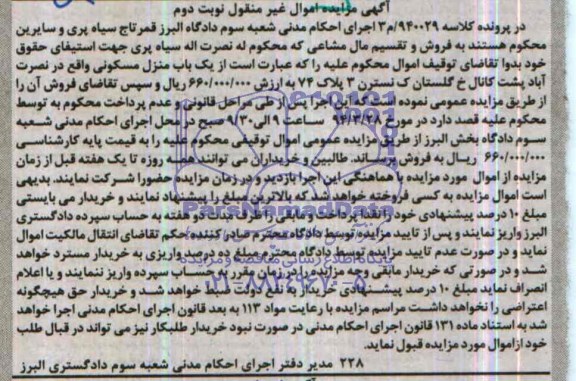 آگهی مزایده اموال غیر منقول نوبت دوم
در پرونده کلاسه ۹۴۰۰۲۹/م۳ اجرای احکام مدنی شعبه سوم دادگاه البرز قمرتاج سیاه پری و سایرین
محکوم هستند به فروش و تقسیم مال مشاعی که محکوم له نصرت اله سیاه پری جهت استیفای حقوق
خود بدوا تقاضای توقیف اموال محکوم علیه را که عبارت است از یک باب منزل مسکونی واقع در نصرت
آباد پشت کانال خ گلستان ک نسترن ۳ پلاک ۷۴ به ارزش ۶۶۰/۰۰۰/۰۰۰ ریال و سپس تقاضای فروش آن را
از طریق مزایده عمومی نموده است که این اجرا پس از طی مراحل قانونی و عدم پرداخت محکوم به توسط
محکوم علیه قصد دارد در مورخ ۹۴/۳/۲۸ ساعت ۹ الی ۹/۳۰ صبح در محل اجرای احکام مدنی شعبه
سوم دادگاه بخش البرز از طریق مزایده عمومی اموال توقیفی محکوم علیه را به قیمت پایه کارشناسی
۶۶۰/۰۰۰/۰۰۰ ریال به فروش برساند. طالبین و خریداران می توانند همه روزه تا یک هفته قبل از زمان
مزایده از اموال مورد مزایده با هماهنگی این اجرا بازدید و در زمان مزایده حضورا شرکت نمایند. بدیهی
است اموال مزایده به کسی فروخته خواهد شد که بالاترین مبلغ را پیشنهاد نمایند و خریدار می بایستی
مبلغ ۱۰ درصد پیشنهادی خود را نقدا پرداخت و مابقی را ظرف مدت دو هفته به حساب سپرده دادگستری
البرز واریز نمایند و پس از تایید مزایده توسط دادگاه محترم صادر کننده حکم تقاضای انتقال مالکیت اموال
نماید و در صورت عدم تایید مزایده توسط دادگاه محترم مبلغ ده درصد واریزی به خریدار مسترد خواهد
شد و در صورتی که خریدار مابقی وجه مزایده را در زمان مقرر به حساب سپرده واریز ننمایند و یا اعلام
انصراف نماید مبلغ ۱۰ درصد پیشنهادی خریدار به نفع دولت ضبط خواهد شد و خریدار حق هیچگونه
اعتراضی را نخواهد داشت مراسم مزایده با رعایت مواد ۱۱۳ به بعد قانون اجرای احکام مدنی اجرا خواهد
شد به استناد ماده ۱۳۱ قانون اجرای احکام مدنی در صورت نبود خریدار طلبکار نیز می تواند در قبال طلب
خود از اموال مورد مزایده قبول نماید.
۲۲۸ مدیر دفتر اجرای احکام مدنی شعبه سوم دادگستری البرز